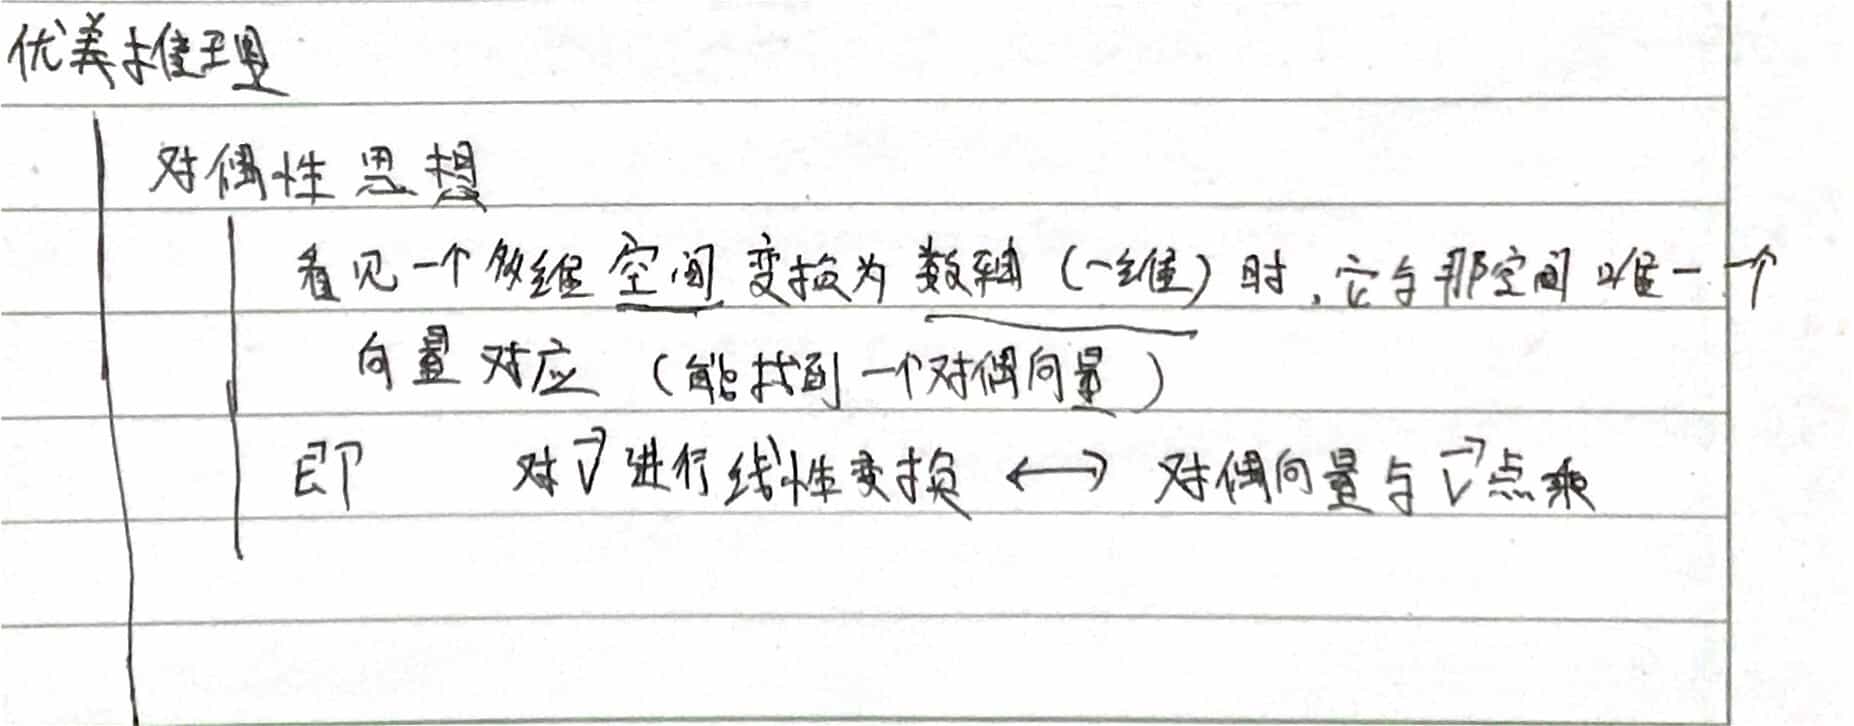 优美推理
对偶性思想
看见一个多维空间变换为数轴(一维)时,它与那空间唯一一个
向量对应(能找到一个对偶向量)
即 对v⃗进行线性变换 ⟷ 对偶向量与v⃗点乘